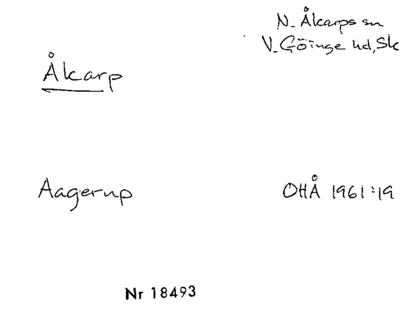 N. Åkarps sn
V. Göinge hd, Sk
Åkarp
Aagerup
OHÅ 1961:19
Nr 18493